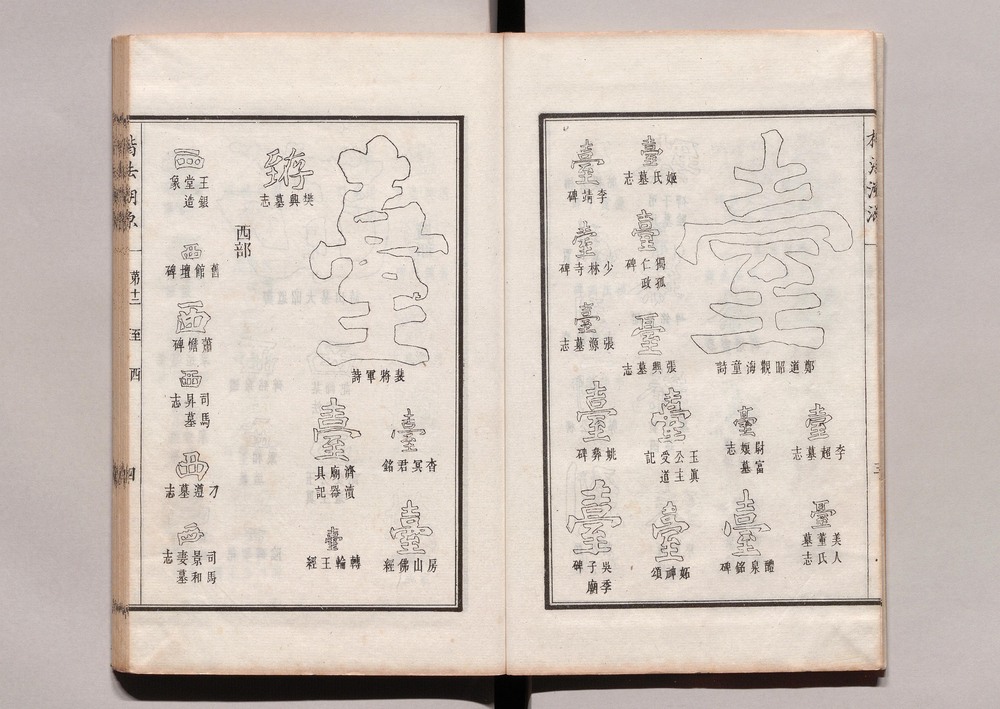 臺
鄭道昭觀海童詩
臺
李超墓志
臺
美人董氏墓志
臺
姬氏墓志
臺
獨孤仁政碑
臺
張興墓志
臺
尉富娘墓志
臺
玉眞公主受道記
臺
醴泉銘碑
臺
妬神頌
臺
李靖碑
臺
少林寺碑
臺
張源墓志
臺
姚彝碑
臺
吳季子廟碑
臺
裴將軍詩
臺
杳冥君銘
臺
房山佛經
臺
濟瀆廟器具記
臺
轉輪王經
樊興墓志
西部
西
王銀堂造象
西
舊館壇碑
西
蕭憺碑
西
司馬昇墓志
西
刁遵墓志
西
司馬景和妻墓志
楷法溯源
第十二
至
西
四